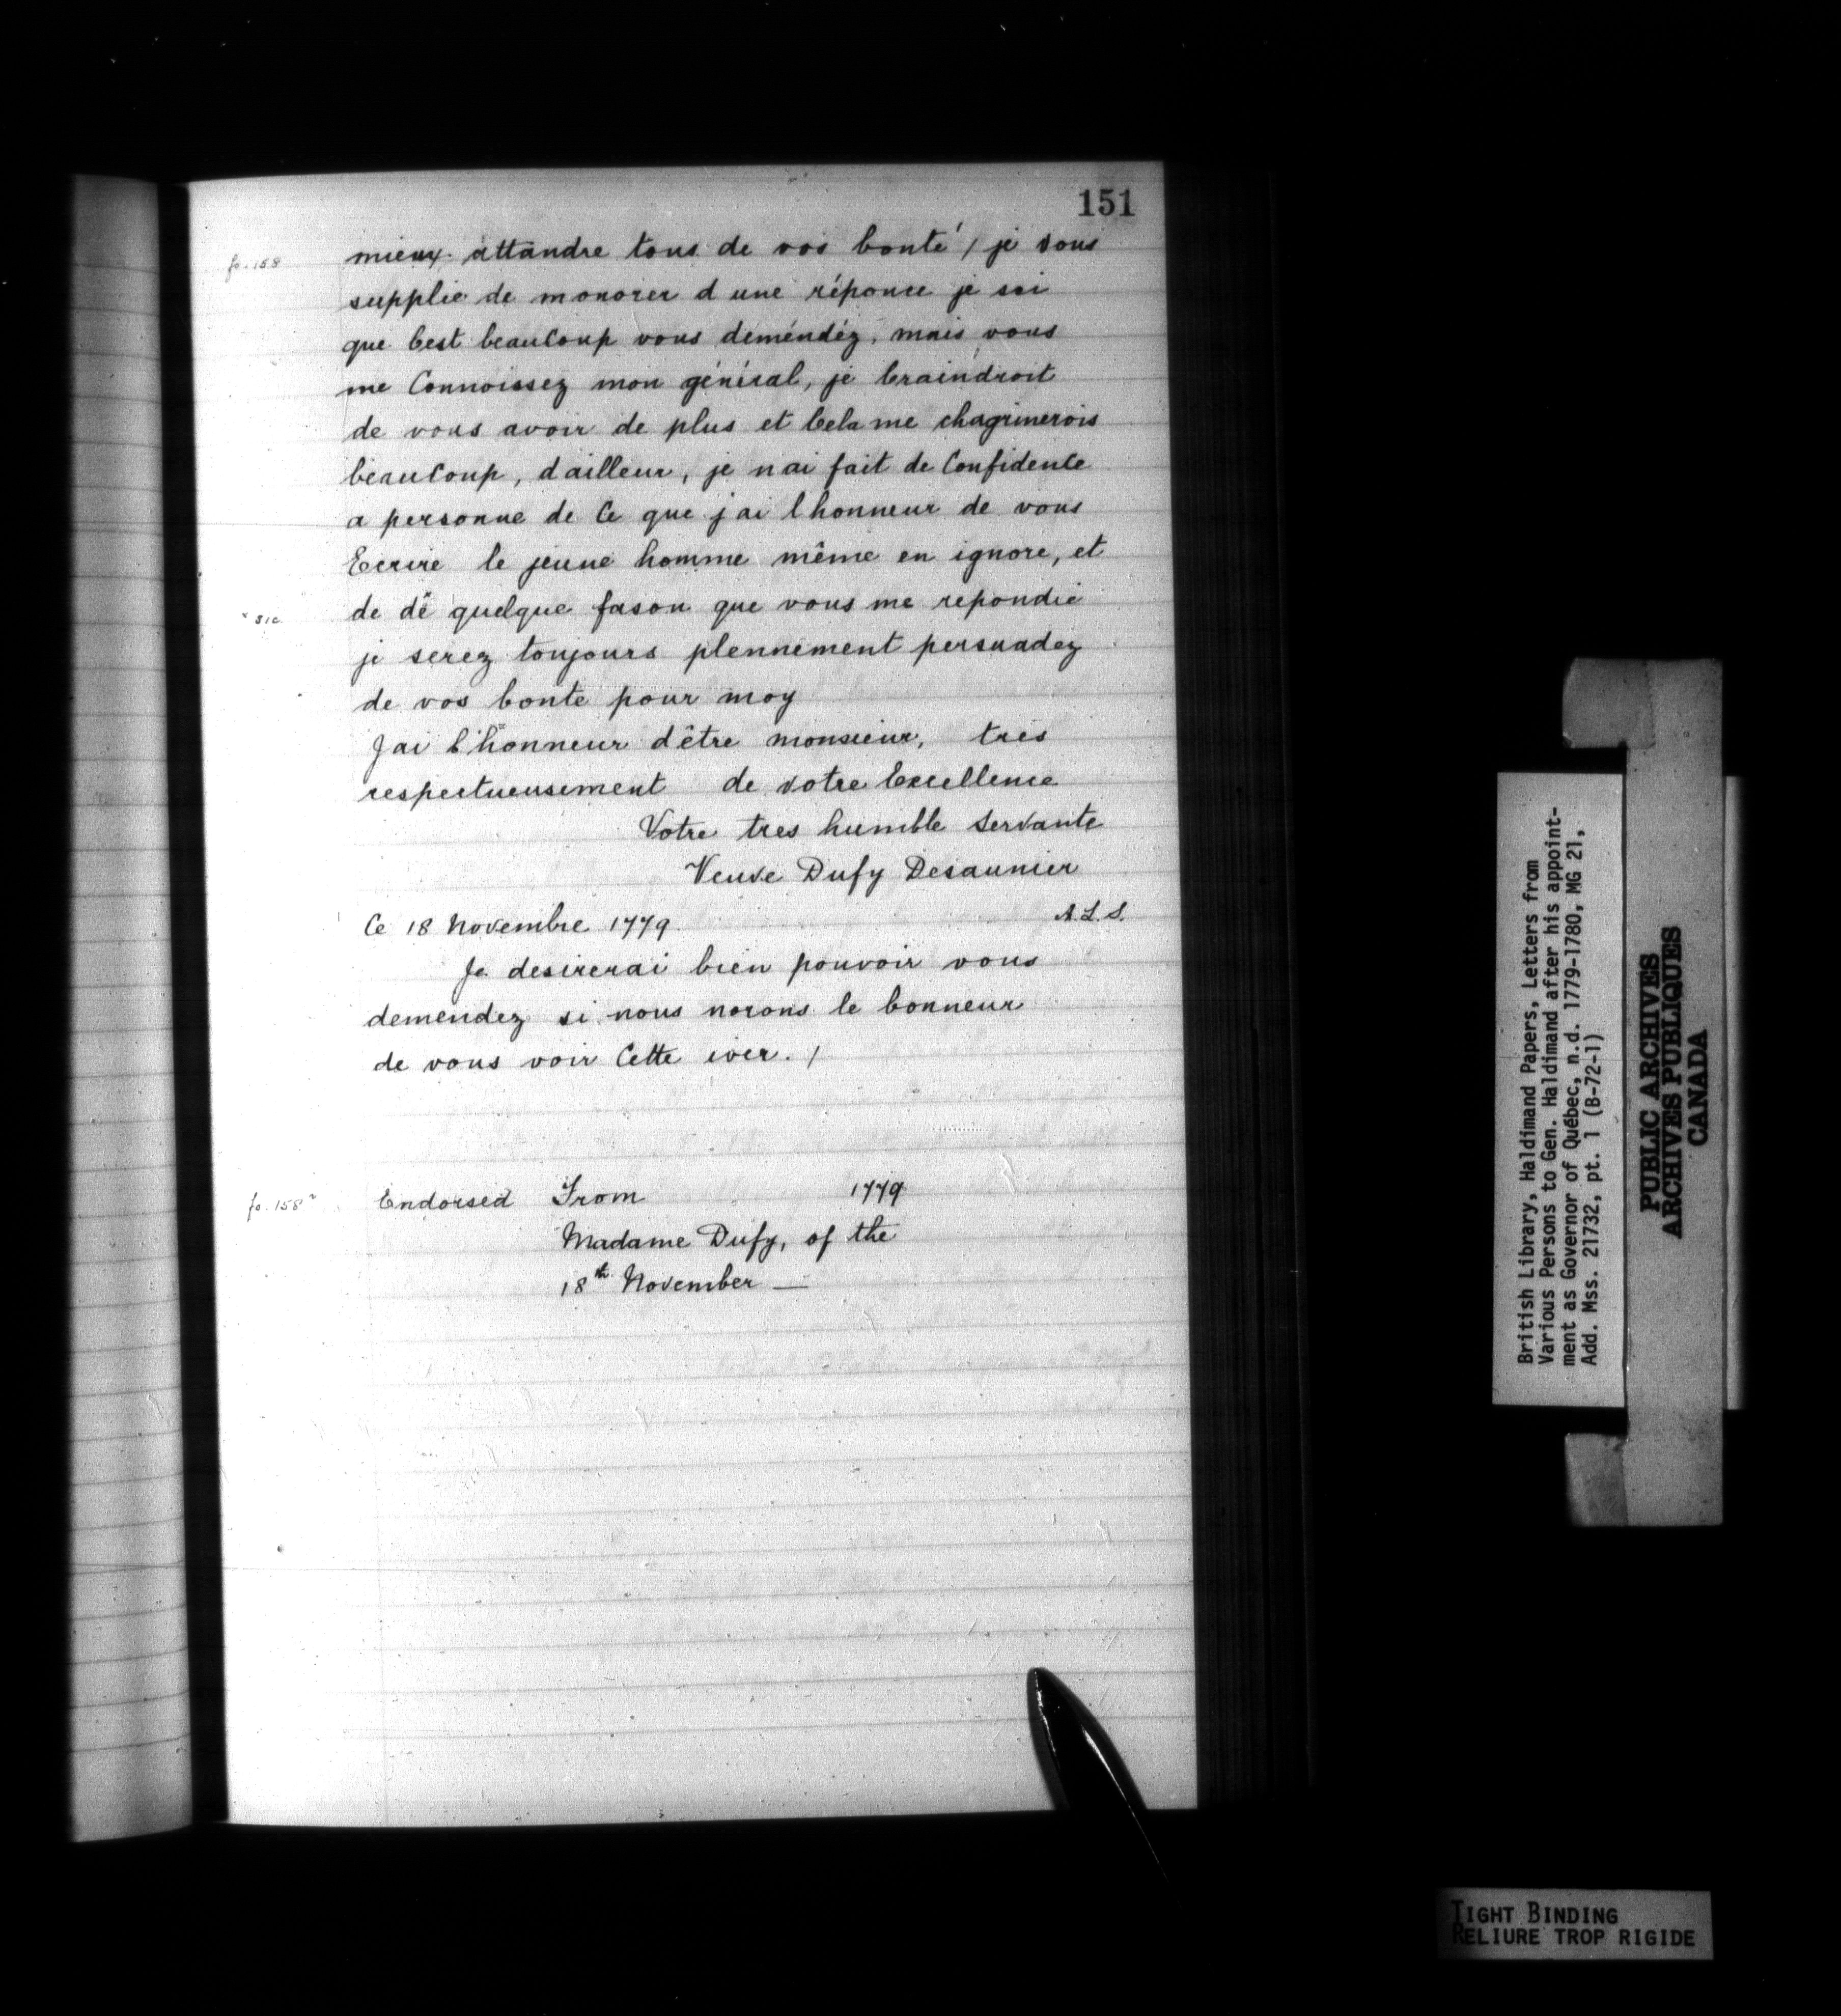 151
fo. 158
mieux attandre tous de vos bonté / je vous
supplie de monorer d une réponce je sai
que Cest beauCoup vous deméndéz, mais vous
me Connoissez mon général, je Craindroit
de vous avoir de plus et Cela me chagrinerois
beauCoup, d ailleur, je n ai fait de ConfidenCe
a personne de Ce que j ai l honneur de vous
Ecrire le jeune homme même en ignore, et
* sic
de dê quelque fason que vous me repondie
je serez toujours plennement persuadez
de vos bonte pour moy
J ai l'honneur d'être monsieur, tres
respectueusement de votre Excellence
Votre tres humble Servante
Veuve Dufy Desaunier
Ce 18 Novembre 1779
A.L.S.
Je desirerai bien pouvoir vous
demendez si nous norons le bonneur
de vous voir Cette iver. /
fo. 158v
Endorsed From 1779
Madame Dufy, of the
18th November —
British Library, Haldimand Papers, Letters from
Various Persons to Gen. Haldimand after his appoint-
ment as Governor of Québec, n.d. 1779-1780, MG 21,
Add. Mss. 21732, pt. 1 (B-72-1)
PUBLIC ARCHIVES
ARCHIVES PUBLIQUES
CANADA
TIGHT BINDING
RELIURE TROP RIGIDE